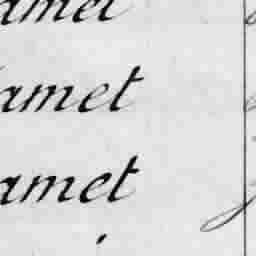 amet
amet
amet